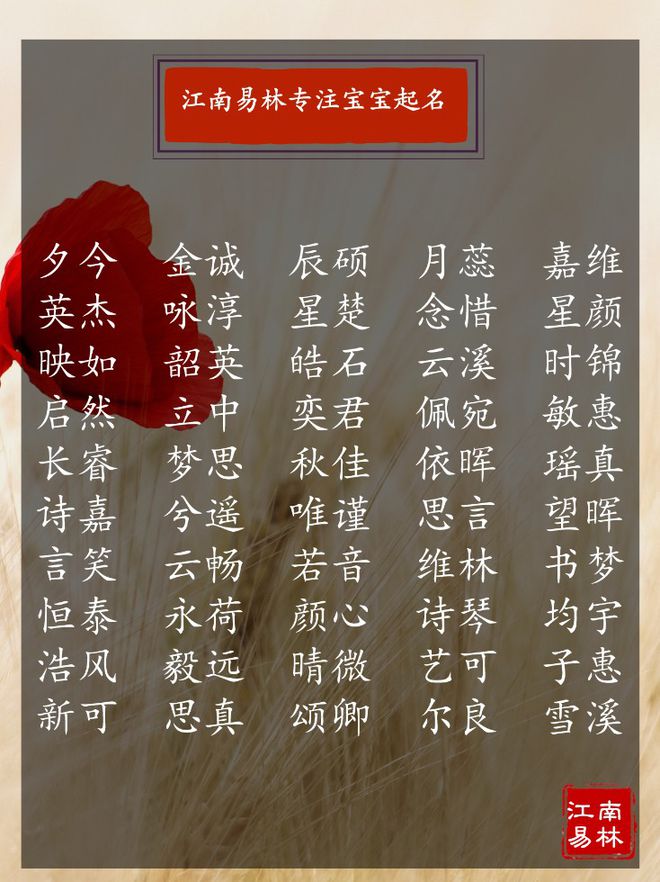 江南易林专注宝宝起名
夕今 金诚 辰硕 月蕊 嘉维
英杰 咏淳 星楚 念惜 星颜
映如 韶英 皓石 云溪 时锦
启然 立中 奕君 佩宛 敏惠
长睿 梦思 秋佳 依晖 瑶真
诗嘉 兮遥 唯谨 思言 望晖
言笑 云畅 若音 维林 书梦
恒泰 永荷 颜心 诗琴 均宇
浩风 毅远 晴微 艺可 子惠
新可 思真 颂卿 尔良 雪溪
江南
易林